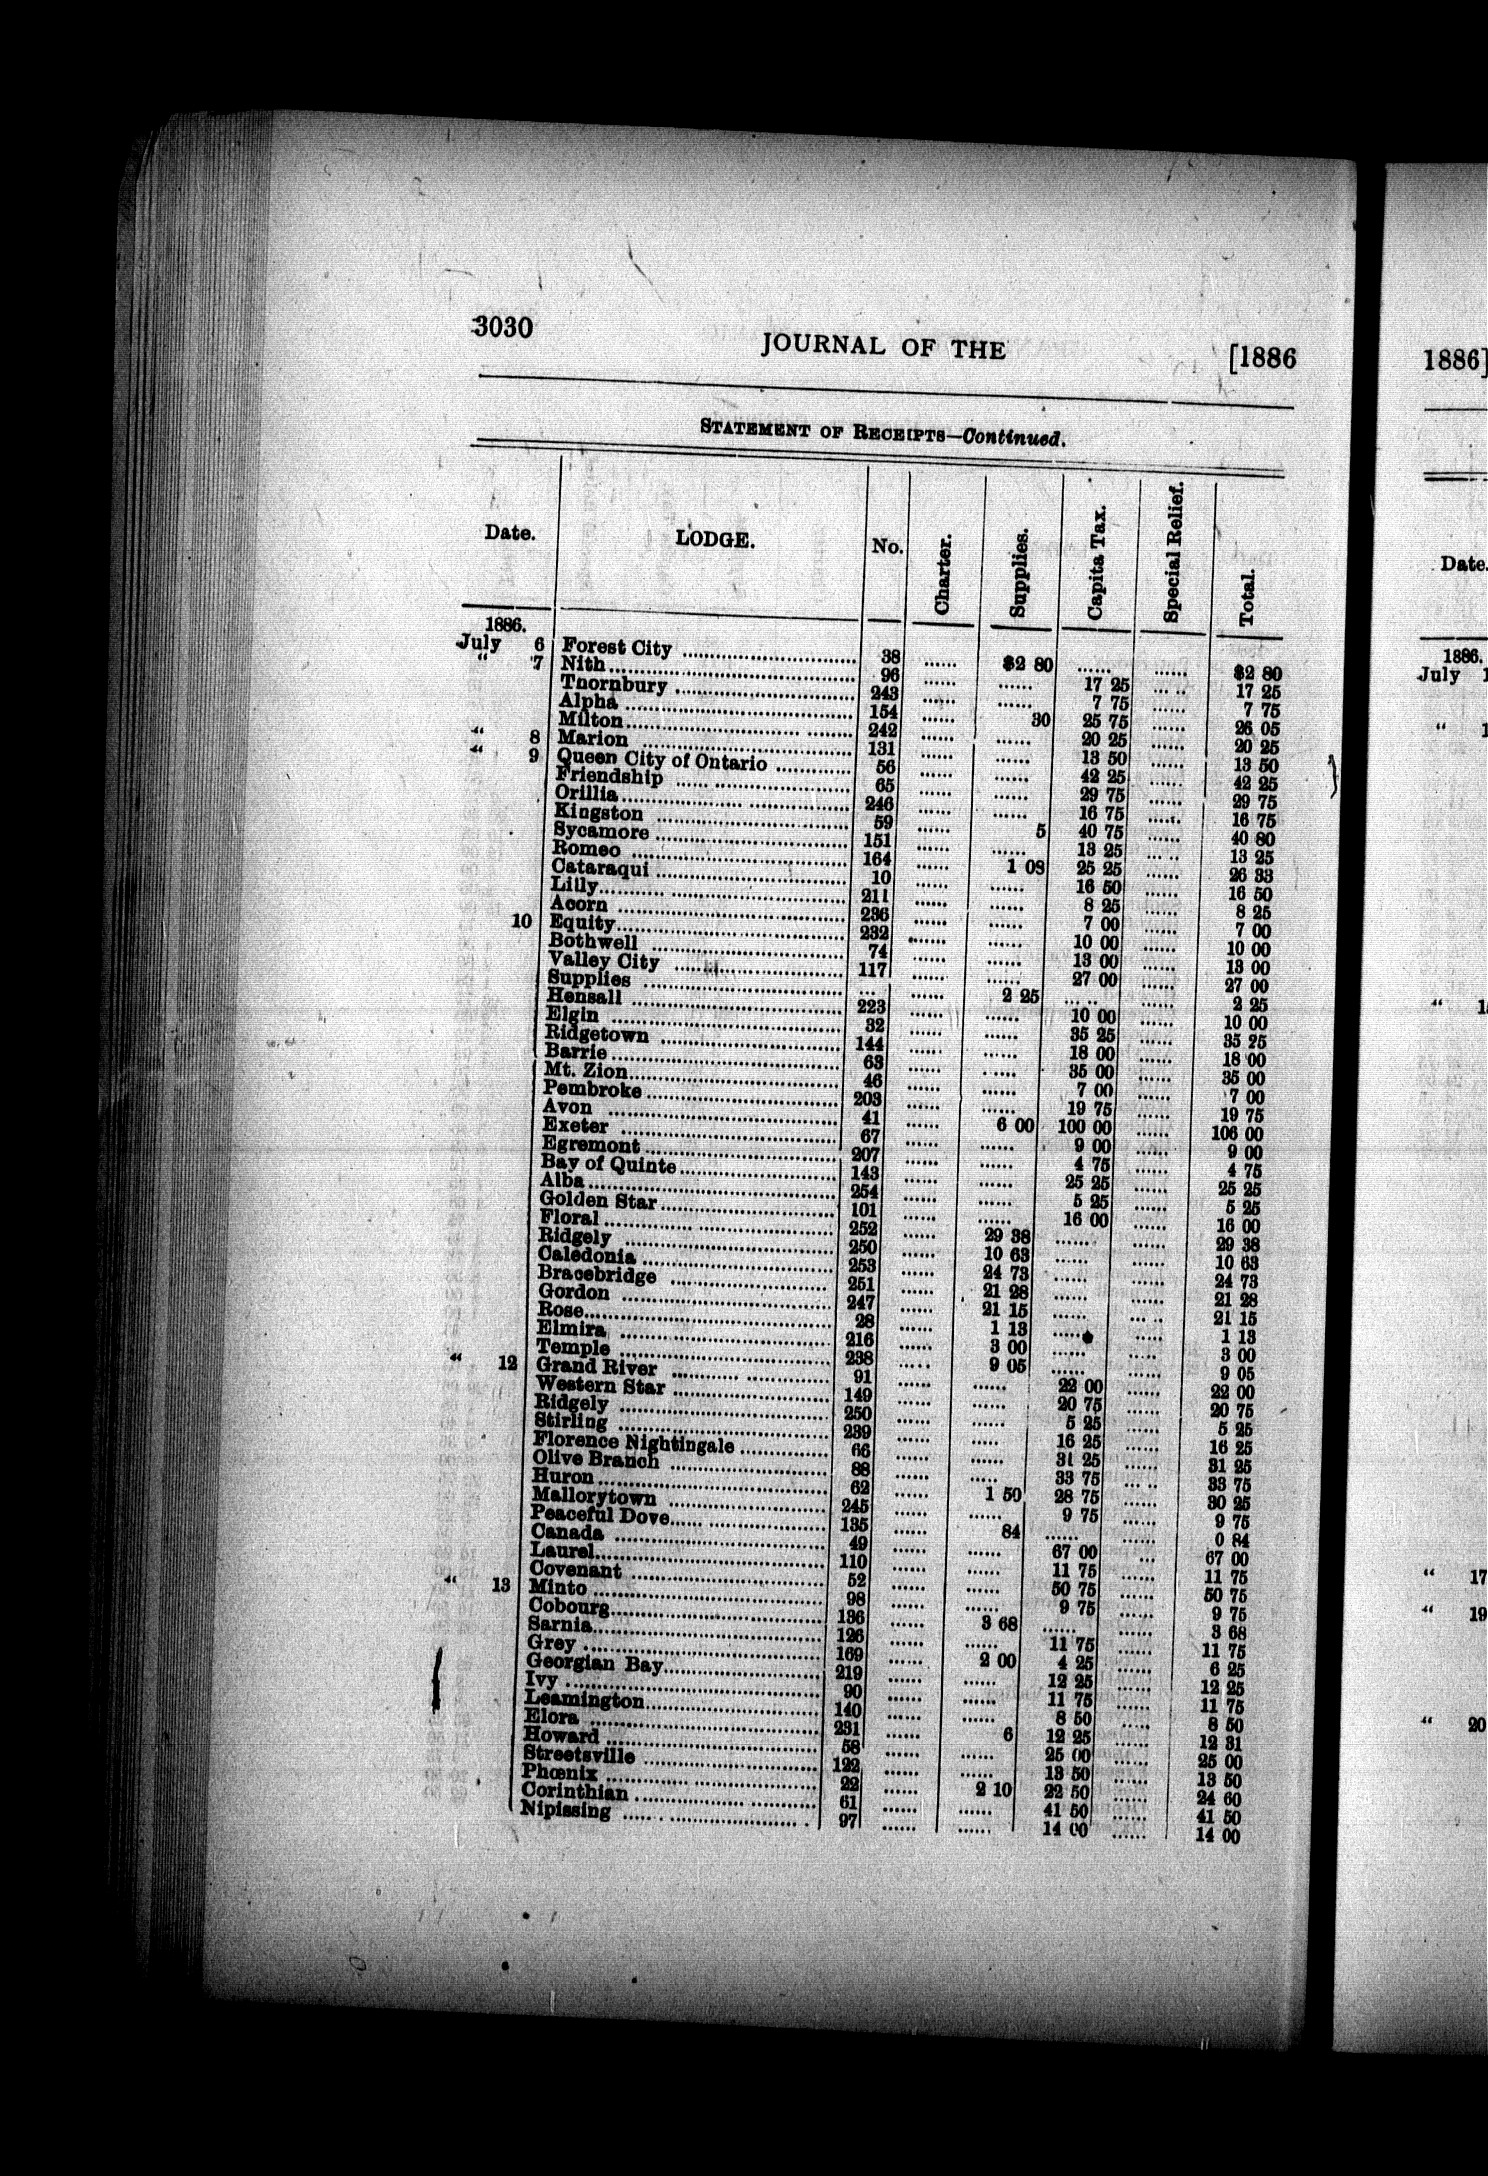 3030 JOURNAL OF THE [1886
STATEMENT OF RECEIPTS—Continued.
Date. LODGE. No. Charter. Supplies. Capita Tax. Special Relief. Total.
1886.
July 6 Forest City 38 ...... $2 80 ...... ...... $2 80
" 7 Nith 96 ...... ...... 17 25 ...... 17 25
Tnornbury 243 ...... ...... 7 75 ...... 7 75
Alpha 154 ...... 30 25 75 ...... 26 05
Milton 242 ...... ...... 20 25 ...... 20 25
" 8 Marion 131 ...... ...... 13 50 ...... 13 50
" 9 Queen City of Ontario 56 ...... ...... 42 25 ...... 42 25
Friendship 65 ...... ...... 29 75 ...... 29 75
Orillia 246 ...... ...... 16 75 ...... 16 75
Kingston 59 ...... 5 40 75 ...... 40 80
Sycamore 151 ...... ...... 13 25 ...... 13 25
Romeo 164 ...... 1 08 25 25 ...... 26 33
Cataraqui 10 ...... ...... 16 50 ...... 16 50
Lilly 211 ...... ...... 8 25 ...... 8 25
Acorn 236 ...... ...... 7 00 ...... 7 00
10 Equity 232 ...... ...... 10 00 ...... 10 00
Bothwell 74 ...... ...... 13 00 ...... 13 00
Valley City 117 ...... ...... 27 00 ...... 27 00
Supplies ... ...... 2 25 ...... ...... 2 25
Hensall 223 ...... ...... 10 00 ...... 10 00
Elgin 32 ...... ...... 35 25 ...... 35 25
Ridgetown 144 ...... ...... 18 00 ...... 18 00
Barrie 63 ...... ...... 35 00 ...... 35 00
Mt. Zion 46 ...... ...... 7 00 ...... 7 00
Pembroke 203 ...... ...... 19 75 ...... 19 75
Avon 41 ...... 6 00 100 00 ...... 106 00
Exeter 67 ...... ...... 9 00 ...... 9 00
Egremont 207 ...... ...... 4 75 ...... 4 75
Bay of Quinte 143 ...... ...... 25 25 ...... 25 25
Alba 254 ...... ...... 5 25 ...... 5 25
Golden Star 101 ...... ...... 16 00 ...... 16 00
Floral 252 ...... 29 38 ...... ...... 29 38
Ridgely 250 ...... 10 63 ...... ...... 10 63
Caledonia 253 ...... 24 73 ...... ...... 24 73
Bracebridge 251 ...... 21 28 ...... ...... 21 28
Gordon 247 ...... 21 15 ...... ...... 21 15
Rose 28 ...... 1 13 ...... ...... 1 13
Elmira 216 ...... 3 00 ...... ...... 3 00
Temple 238 ...... 9 05 ...... ...... 9 05
" 12 Grand River 91 ...... ...... 22 00 ...... 22 00
Western Star 149 ...... ...... 20 75 ...... 20 75
Ridgely 250 ...... ...... 5 25 ...... 5 25
Stirling 239 ...... ...... 16 25 ...... 16 25
Florence Nightingale 66 ...... ...... 31 25 ...... 31 25
Olive Branch 88 ...... ...... 33 75 ...... 33 75
Huron 62 ...... 1 50 28 75 ...... 30 25
Mallorytown 245 ...... ...... 9 75 ...... 9 75
Peaceful Dove 135 ...... 84 ...... ...... 0 84
Canada 49 ...... ...... 67 00 ...... 67 00
Laurel 110 ...... ...... 11 75 ...... 11 75
Covenant 52 ...... ...... 50 75 ...... 50 75
" 13 Minto 98 ...... ...... 9 75 ...... 9 75
Cobourg 136 ...... 3 68 ...... ...... 3 68
Sarnia 126 ...... ...... 11 75 ...... 11 75
Grey 169 ...... 2 00 4 25 ...... 6 25
Georgian Bay 219 ...... ...... 12 25 ...... 12 25
Ivy 90 ...... ...... 11 75 ...... 11 75
Leamington 140 ...... ...... 8 50 ...... 8 50
Elora 231 ...... 6 12 25 ...... 12 31
Howard 58 ...... ...... 25 00 ...... 25 00
Streetsville 122 ...... ...... 13 50 ...... 13 50
Phœnix 22 ...... 2 10 22 50 ...... 24 60
Corinthian 61 ...... ...... 41 50 ...... 41 50
Nipissing 97 ...... ...... 14 00 ...... 14 00
1886]
Date.
1886.
July
" 17
" 19
" 20